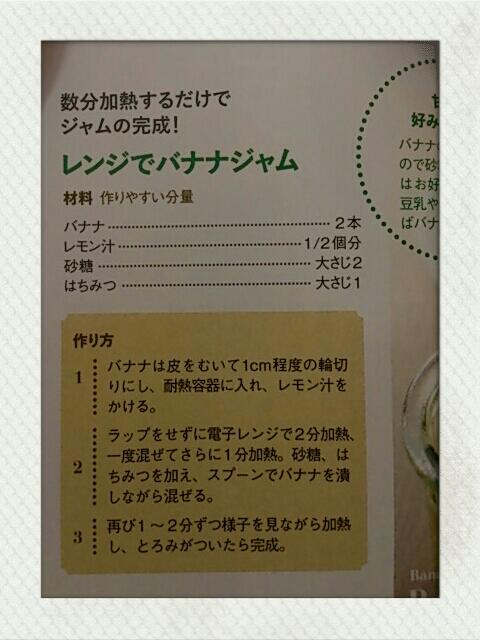 数分加熱するだけで
ジャムの完成!
レンジでバナナジャム
材料 作りやすい分量
バナナ 2本
レモン汁 1/2個分
砂糖 大さじ2
はちみつ 大さじ1
作り方
1 バナナは皮をむいて1cm程度の輪切
りにし、耐熱容器に入れ、レモン汁を
かける。
2 ラップをせずに電子レンジで2分加熱、
一度混ぜてさらに1分加熱。砂糖、は
ちみつを加え、スプーンでバナナを潰
しながら混ぜる。
3 再び1〜2分ずつ様子を見ながら加熱
し、とろみがついたら完成。
好み
バナナ
ので砂
はお好
豆乳や
ばバナ
Ban